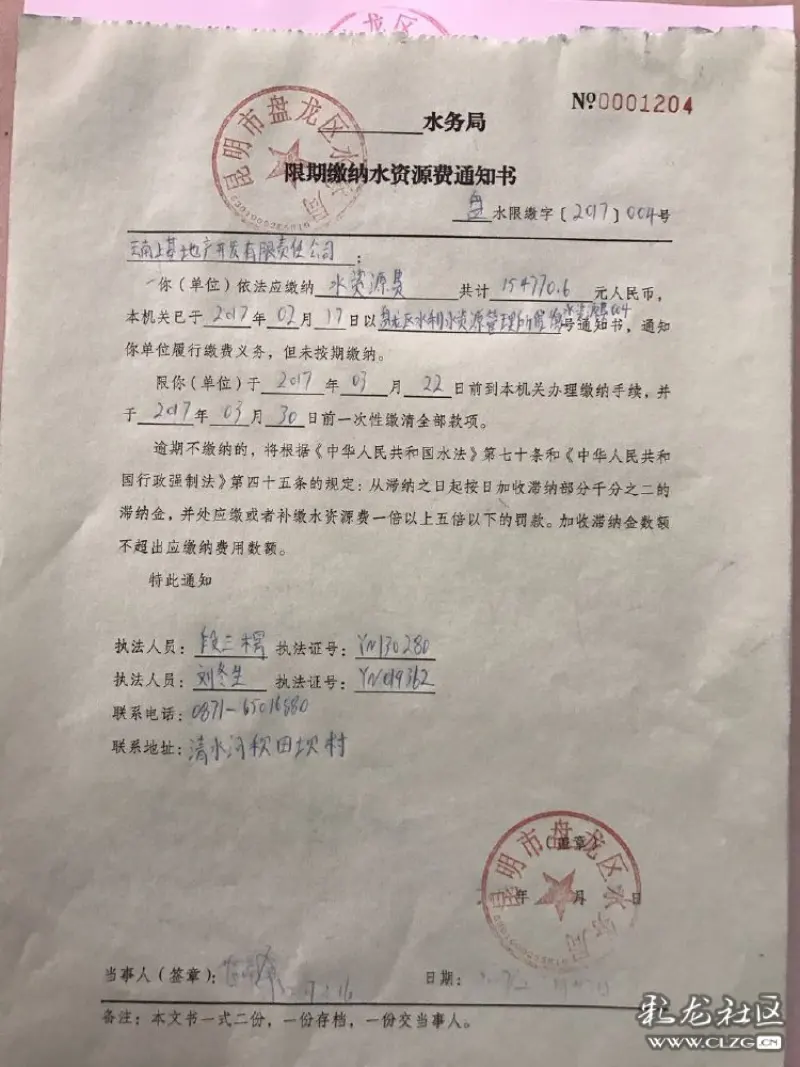 昆明市盘龙区水务局
水务局
№0001204
限期缴纳水资源费通知书
盘 水限缴字〔2017〕004号
云南上基地产开发有限责任公司：
你（单位）依法应缴纳 水资源费 共计 154770.6 元人民币，
本机关已于 2017 年 02 月 17 日以 盘龙区水利水资源管理所 号通知书，通知
你单位履行缴费义务，但未按期缴纳。
限你（单位）于 2017 年 03 月 22 日前到本机关办理缴纳手续，并
于 2017 年 03 月 30 日前一次性缴清全部款项。
逾期不缴纳的，将根据《中华人民共和国水法》第七十条和《中华人民共和
国行政强制法》第四十五条的规定：从滞纳之日起按日加收滞纳部分千分之二的
滞纳金，并处应缴或者补缴水资源费一倍以上五倍以下的罚款。加收滞纳金数额
不超出应缴纳费用数额。
特此通知
执法人员：段三 执法证号：YN130280
执法人员：刘冬生 执法证号：YN019362
联系电话：0871-65016880
联系地址：清水河秧田坝村
昆明市盘龙区水务局
（盖章）
年 月 日
当事人（签章）： 日期：
备注：本文书一式二份，一份存档，一份交当事人。
彩龙社区
www.CLZG.cn